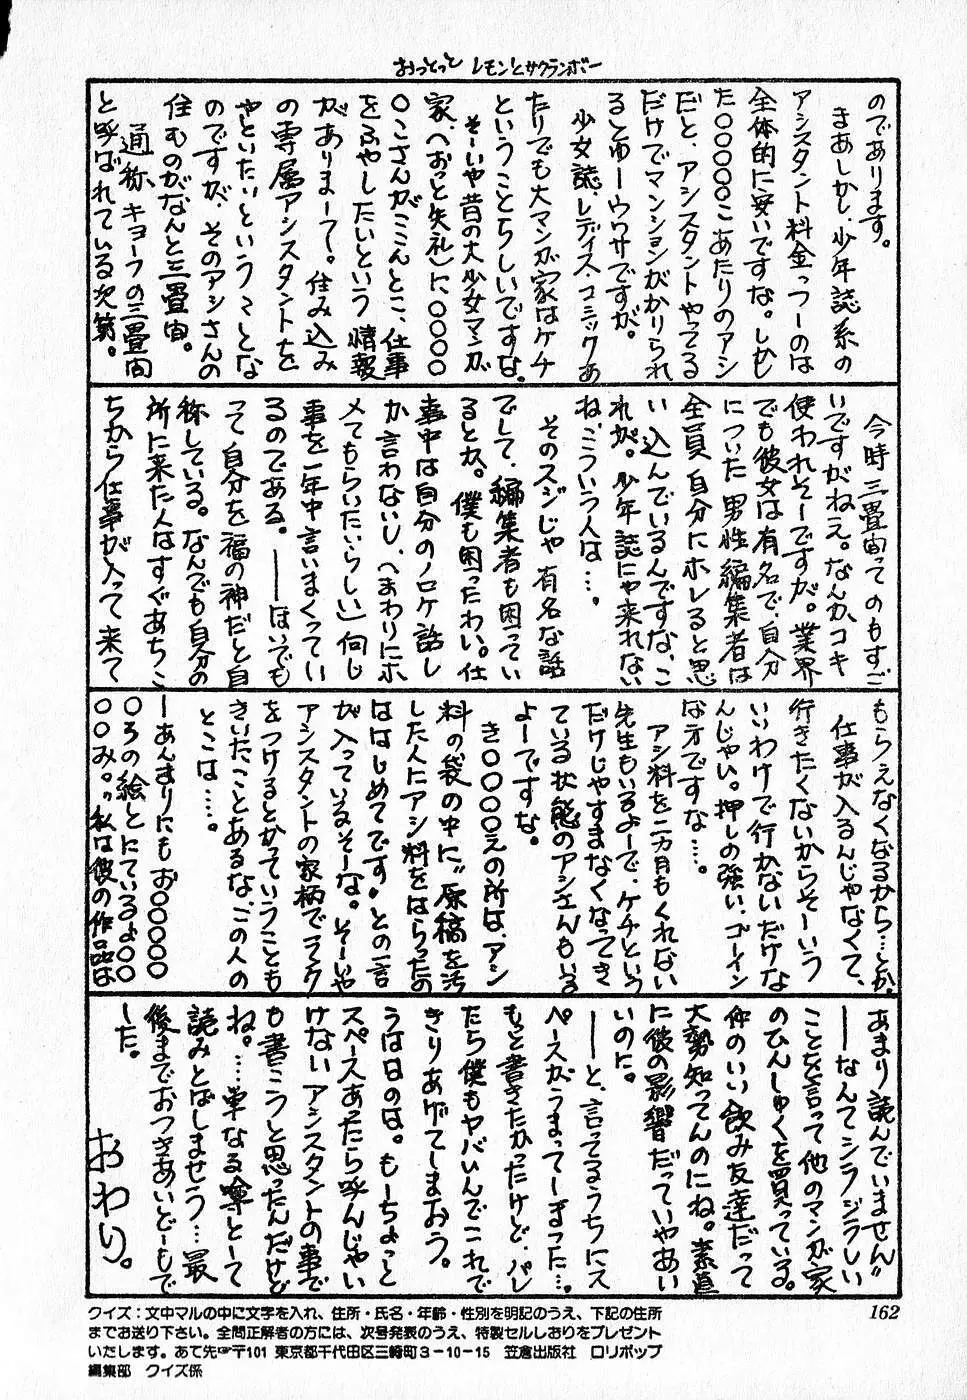 おっとっと レモンとサクランボー
のであります。
まあしかし、少年誌系の
アシスタント料金っつーのは
全体的に安いですな。しかし
た〇〇〇〇こあたりのアシ
だと、アシスタントやってる
だけでマンションがかりられ
るとゆーウワサですが。
少女誌、レディスコミックあ
たりでも大マンガ家はケチ
ということらしいですな。
そーいや昔の大少女マンガ
家、(おっと失礼)に〇〇〇〇
〇こさんがこんとこ、仕事
をふやしたいという情報
がありまーて。住み込み
の専属アシスタントを
やといたいということな
のですが、そのアシさんの
住むのがなんと三畳間。
通称キョーフの三畳間
と呼ばれている次第。
今時三畳間ってのもすご
いですがねえ。なんかコキ
使われそーですが。業界
でも彼女は有名で、自分
についた男性編集者は
全員自分にホレると思
い込んでいるんですな、こ
れが。少年誌にゃ来れない
ね、こういう人は…。
そのスジじゃ有名な話
でして、編集者も困ってい
るとか。僕も困ったわい。仕
事中は自分のノロケ話し
か言わないし、(まわりにホ
メてもらいたいらしい)同じ
事を一年中言いまくってい
るのである。——ほいでも
って自分を福の神だと自
称している。なんでも自分の
所に来た人はすぐあちこ
ちから仕事が入って来て
もらえなくなるから…とか。
仕事が入るんじゃなくて、
行きたくないからそーいう
いいわけで行かないだけな
んじゃい。押しの強い、ゴーイン
な方ですな…。
アシ料を二カ月もくれない
先生もいるよーで、ケチという
だけじゃすまなくなってき
ている状態のアシさんもいる
よーですな。
き〇〇〇〇えの所は、アシ
料の袋の中に〝原稿を汚
した人にアシ料をはらったの
ははじめてです〟との一言
が入っているそーな。そーいや
アシスタントの家柄でランク
をつけるとかっていうことも
きいたことあるな、この人の
とこは……。
—あんまりにもお〇〇〇〇
〇ろの絵とにているよ〇〇
〇〇み。〝私は彼の作品は
あまり読んでいません〟
——なんてシラジラしい
ことを言って他のマンガ家
のひんしゅくを買っている。
仲のいい飲み友達だって
大勢知ってんのにね。素直
に彼の影響だっていやあい
いのに。
——と、言ってるうちにス
ペースがうまってーまった…。
もっと書きたかったけど、バレ
たら僕もヤバいんでこれで
きりあげてしまおう。
うは日のは。もーちょっと
スペースあったら呼んじゃい
けないアシスタントの事で
も書こうと思ったんだけど
ね。…単なる噂とーて
読みとばしませう…最
後までおつきあいどーもで
した。
おわり。
162
クイズ：文中マルの中に文字を入れ、住所・氏名・年齢・性別を明記のうえ、下記の住所
までお送り下さい。全問正解者の方には、次号発表のうえ、特製セルしおりをプレゼント
いたします。あて先☞〒101 東京都千代田区三崎町3－10－15 笠倉出版社 ロリポップ
編集部 クイズ係